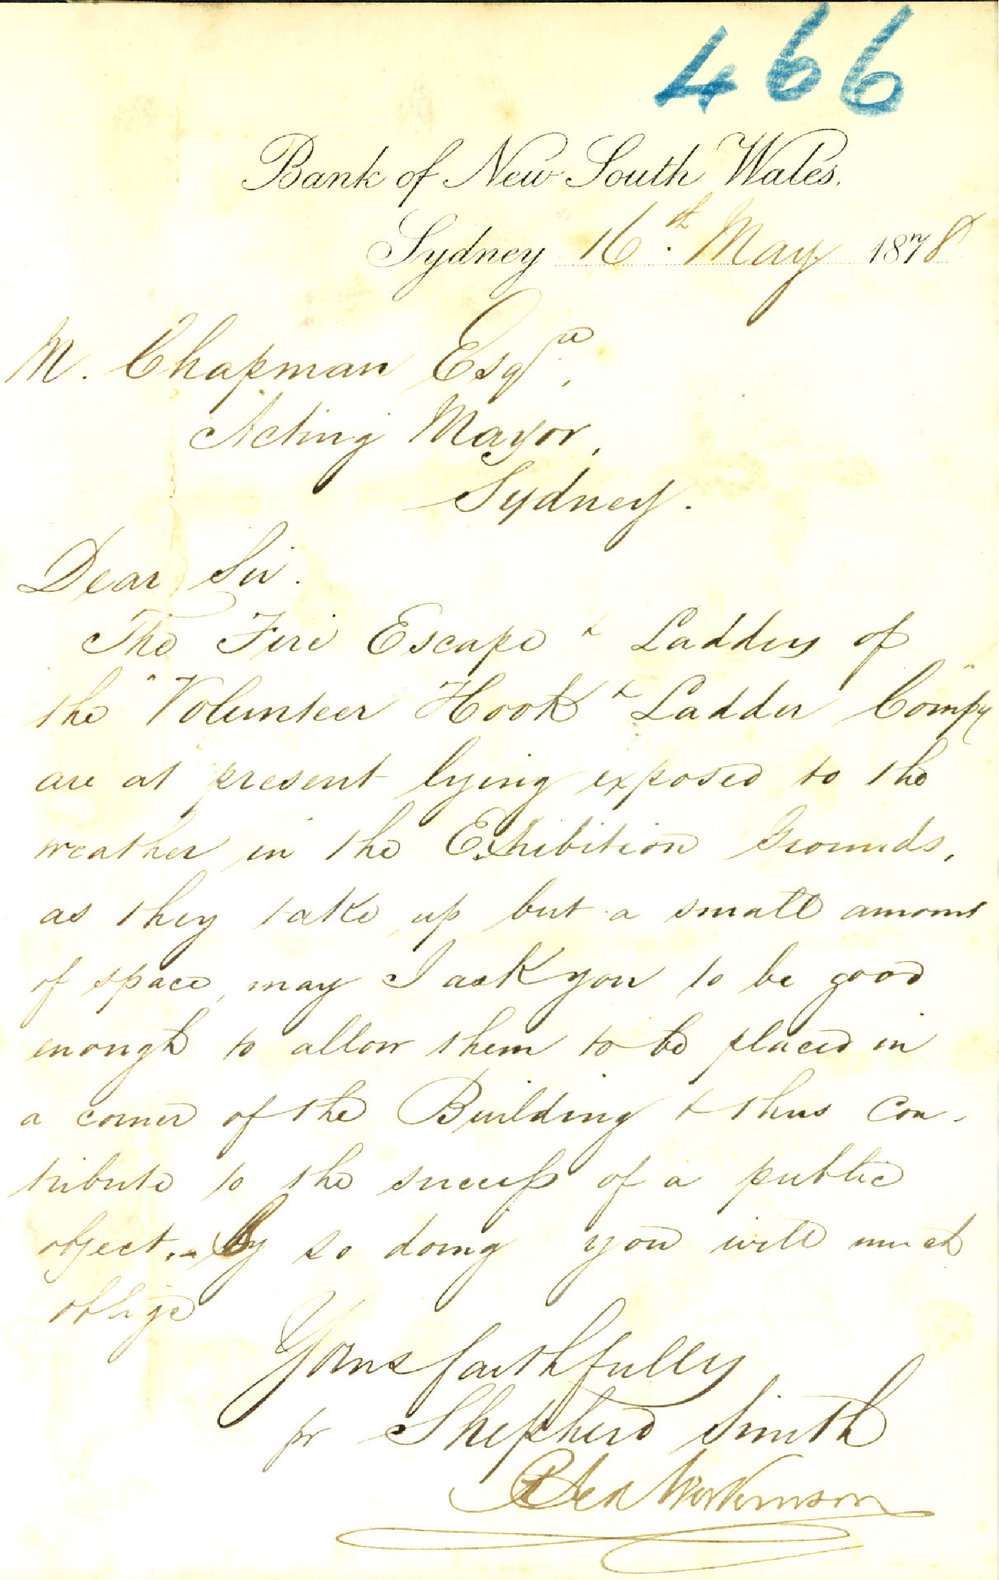 466
Bank of New South Wales.
Sydney 16th. May 1878
M. Chapman Esqre,
Acting Mayor,
Sydney.
Dear Sir.
The Fire Escape & Ladders of
the "Volunteer Hook & Ladder Compy"
are at present lying exposed to the
weather in the Exhibition Grounds,
as they take up but a small amount
of space, may I ask you to be good
enough to allow them to be placed in
a corner of the Building & thus con-
tribute to the success of a public
object. - By so doing you will much
oblige
Yours faithfully
pr Shepherd Smith